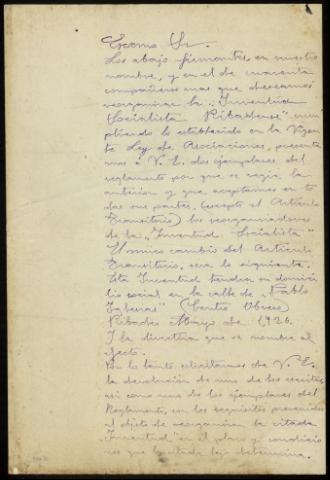 Excmo Sr.
Los abajo firmantes, en nuestro
nombre, y en el de cuarenta
compañeros mas que deseamos
reorganizar la "Juventud
Socialista Ribadense" cum
pliendo lo establecido en la Vigente
Ley de Asociaciones, presenta
mos a V. E. dos ejemplares del
reglamento por que se regia la
anterior y que aceptamos en to
das sus partes, (excepto el Articulo
Transitorio) los reorganizadores
de la "Juventud Socialista"
Unico cambio del Articulo
transitorio, sera lo siguiente.
Esta Juventud tendra su domici
lio social en la calle de "Pablo
Iglesias" (Centro Obrero)
Ribadeo Mayo de 1926.
Y la directiva que se nombre al
efecto.
Por lo tanto solicitamos de V. E.
la devolucion de uno de los escritos
asi como uno de los ejemplares del
Reglamento, con los requisitos prevenidos
al objeto de reorganizar la citada
"Juventud" en el plazo y condicio
nes que la citada ley determina.